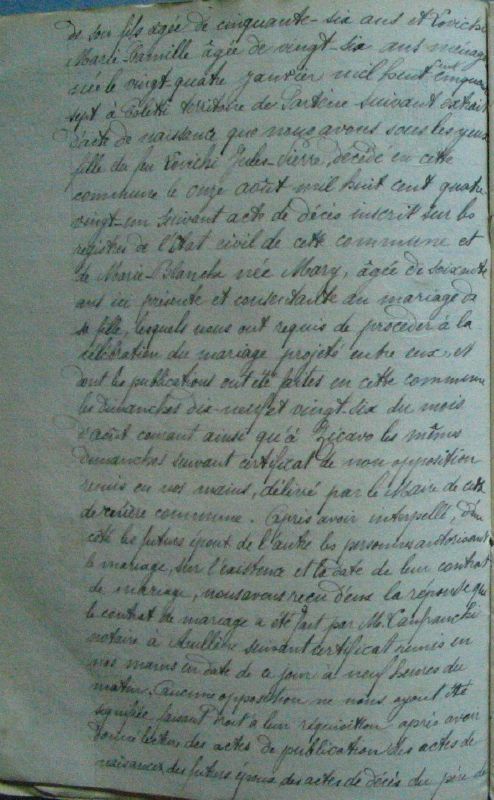 de son fils âgée de cinquante-six ans et Lovichi
Marie-Camille âgée de vingt-six ans ménagère
née le vingt quatre janvier mil huit cent cinquante
sept à territoire de Sartène suivant extrait
d'acte de naissance que nous avons sous les yeux
fille du feu Lovichi Jules-Pierre, décédé en cette
commune le onze août mil huit cent quatre
vingt-un suivant acte de décès inscrit sur les
registres de l'état civil de cette commune et
de Marie-Blanche née Mary, âgée de soixante
ans ici présente et consentante au mariage de
sa fille, lesquels nous ont requis de procéder à la
célébration du mariage projeté entre eux et
dont les publications ont été faites en cette commune
les dimanches dix-neuf et vingt-six du mois
d'août courant ainsi qu'à Zicavo les mêmes
dimanches suivant certificat de non opposition
remis en nos mains, délivré par le Maire de cette
dernière commune. Après avoir interpellé, d'un
côté les futurs époux de l'autre les personnes autorisant
le mariage, sur l'existence et la date de leur contrat
de mariage, nous avons reçu d'eux la réponse que
le contrat de mariage a été fait par Me Lanfranchi
notaire à Aullène suivant certificat remis en
nos mains en date de ce jour à neuf heures du
matin. Aucune opposition ne nous ayant été
signifiée faisant droit à leur réquisition après avoir
donné lecture des actes de publication des actes de
naissances des futurs époux des actes de décès du père de